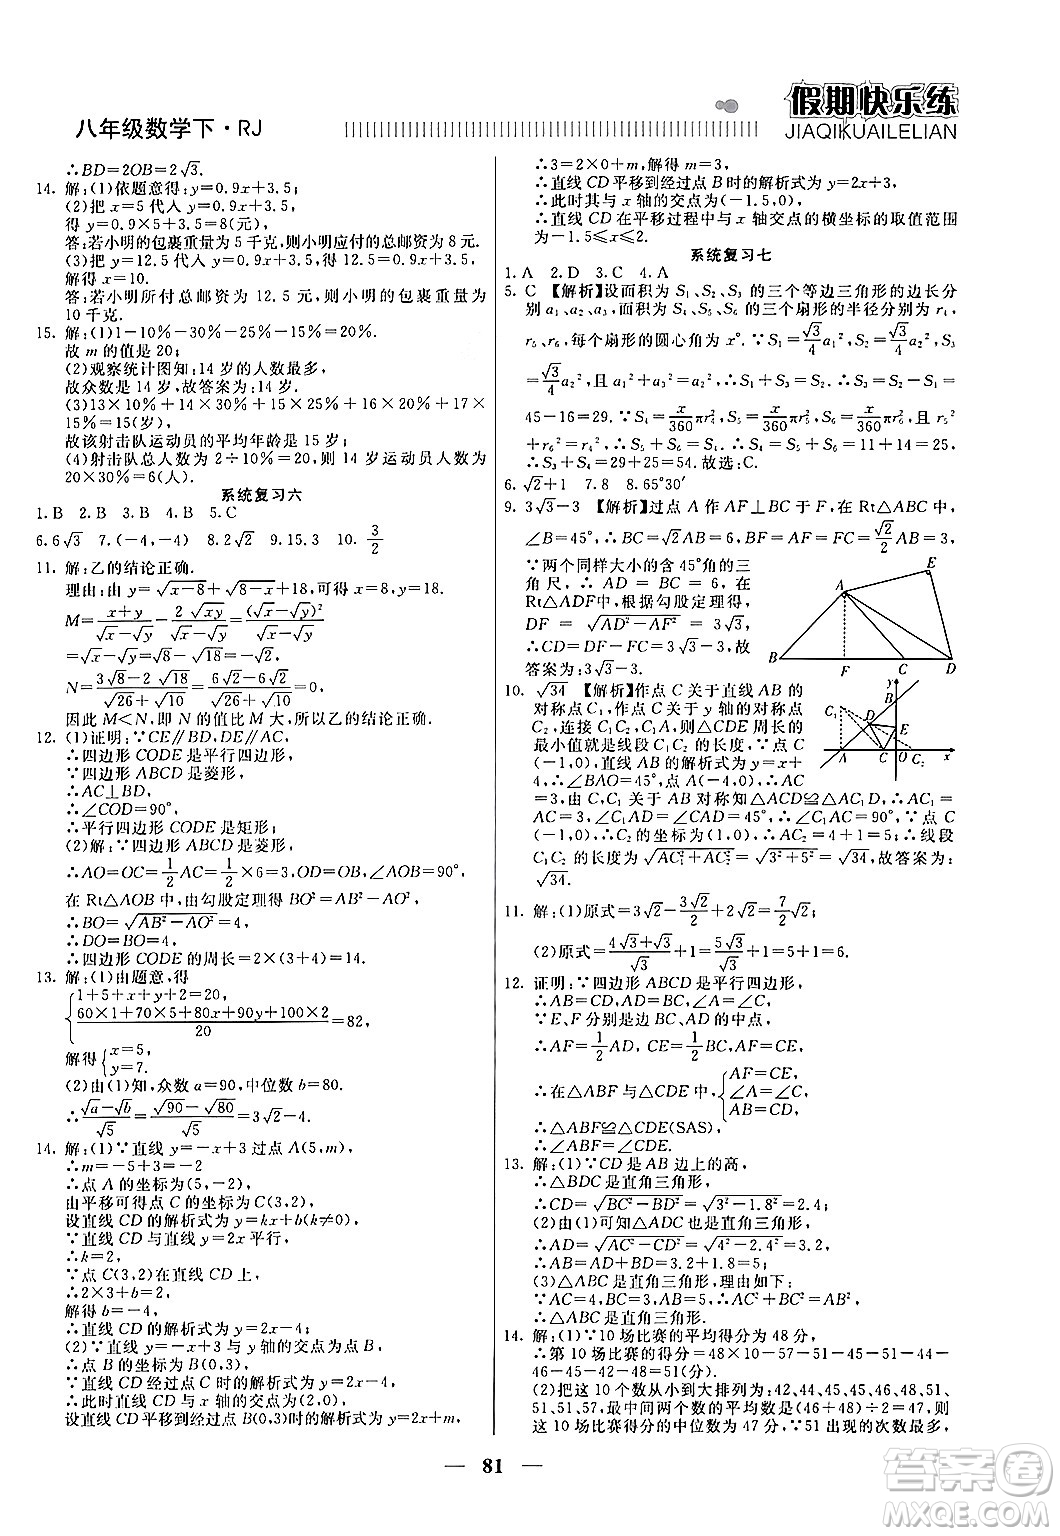 八年级数学下·RJ
假期快乐练
JIAQIKUAILELIAN
∴BD=2OB=2√3.
14. 解:(1)依题意得:y=0.9x+3.5;
(2)把 x=5 代入 y=0.9x+3.5,
得 y=0.9×5+3.5=8(元),
答:若小明的包裹重量为 5 千克,则小明应付的总邮资为 8 元.
(3)把 y=12.5 代入 y=0.9x+3.5,
解得 x=10.
答:若小明所付总邮资为 12.5 元,则小明的包裹重量为
10 千克.
15. 解:(1)1-10%-30%-25%-15%=20%.
故 m 的值是 20;
(2)观察统计图知:14 岁的人数最多,
故众数是 14 岁,故答案为:14 岁.
(3)13×10%+14×30%+15×25%+16×20%+17×
15%=15(岁),
故该射击队运动员的平均年龄是 15 岁;
(4)射击队总人数 2÷10%=20(人),14 岁运动员人数为
20×30%=6(人).
系统复习六
1. B 2. B 3. B 4. B 5. C
6. 6√3 7. (-4,-4) 8. 2√2 9. 15.3 10. 3/2
11. 解:乙的结论正确.
理由:由 y=√(x-8)+√(8-x)+18,可得 x=8,y=18.
M=(x+y)/(√x-√y)-(2√(xy))/(√x-√y)=(√x-√y)²/(√x-√y)
=√x-√y=√8-√18=-√2.
N=(3√8-2√18)/(√26+√10)=(6√2-6√2)/(√26+√10)=0,
因此 M<N,即 N 的值比 M 大,所以乙的结论正确.
12. (1)证明:∵CE∥BD,DE∥AC,
∴四边形 CODE 是平行四边形,
∵四边形 ABCD 是菱形,
∴AC⊥BD,
∴∠COD=90°,
∴平行四边形 CODE 是矩形;
(2)解:∵四边形 ABCD 是菱形,
∴AO=OC=1/2AC=1/2×6=3,OD=OB,∠AOB=90°,
在 Rt△AOB 中,由勾股定理得 BO²=AB²-AO²,
∴BO=√(AB²-AO²)=4,
∴DO=BO=4,
∴四边形 CODE 的周长=2×(3+4)=14.
13. 解:(1)由题意,得
{1+5+x+y+2=20,
(60×1+70×5+80x+90y+100×2)/20=82,
解得{x=5,
y=7.
(2)由(1)知,众数 a=90,中位数 b=80.
∴(√a-√b)/√5=(√90-√80)/√5=3√2-4.
14. 解:(1)∵直线 y=-x+3 过点 A(5,m),
∴m=-5+3=-2
∴点 A 的坐标为(5,-2)
由平移可得点 C 的坐标为(3,2)
设直线 CD 的解析式为 y=kx+b(k≠0),
∵直线 CD 与直线 y=2x 平行,
∴k=2,
∵点 C(3,2)在直线 CD 上,
∴2×3+b=2,
解得 b=-4,
∴直线 CD 的解析式为 y=2x-4;
(2)∵直线 CD 与 y 轴的交点为点 B,
∴点 B 的坐标为(0,3),
∵直线 CD 经过点 C 的解析式为 y=2x-4
∴此时直线与 x 轴的交点为(2,0),
设直线 CD 平移到经过点 B(0,3)时的解析式为 y=2x+m,
∴3=2×0+m,解得 m=3,
∴直线 CD 平移到经过点 B 时的解析式为 y=2x+3,
∴此时其与 x 轴的交点为(-1.5,0),
∴直线 CD 在平移过程中与 x 轴交点的横坐标的取值范围
为-1.5≤x≤2.
系统复习七
1. A 2. D 3. C 4. A
5. C 【解析】设面积为 S₁、S₂、S₃ 的三个等边三角形的边长分
别 a₁、a₂、a₃,而面积为 S₄、S₅、S₆ 的三个扇形的半径分别为 r₄,
r₅、r₆,每个扇形的圆心角为 x°. ∵S₁=√3/4a₁²,S₂=√3/4a₂²,S₃
=√3/4a₂²,且 a₁²+a₃²=a₂²,∴S₁+S₃=S₂,∴S₃=S₂-S₁=
45-16=29. ∵S₄=x/360πr₄²,S₅=x/360πr₅²,S₆=x/360πr₆²,且 r₅²
+r₆²=r₄²,∴S₅+S₆=S₄,∴S₄=S₅+S₆=11+14=25,
∴S₃+S₄=29+25=54. 故选:C.
6. √2+1 7. 8 8. 65°30′
9. 3√3-3 【解析】过点 A 作 AF⊥BC 于 F,在 Rt△ABC 中,
∠B=45°,∴BC=√2AB=6,BF=AF=√2/2AB=3,
∵两个同样大小的含 45°角的三
角尺,∴AD=BC=6,在
Rt△ADF中,根据勾股定理得,
DF=√(AD²-AF²)=3√3,
∴CD=BF+DF-BC=3+3√3-6=3√3-3,故
答案为:3√3-3.
A
B
C
D
E
F
10. √34 【解析】作点 C 关于直线 AB 的
对称点 C₁,作点 C 关于 y 轴的对称点
C₂,连接 C₁C₂,C₁A,∴△CDE 周长的
最小值就是线段 C₁C₂ 的长度,∵点 C
(-1,0),直线 AB 的解析式为 y=x+
4,∴∠BAO=45°,点 A(-4,0),∴AC
=3,由 C、C₁ 关于 AB 对称知△ACD≌△AC₁D,∴AC₁=
AC=3,∠C₁AD=∠CAD=45°,∴∠C₁AC=90°,∵点 C
(-1,0),∴C₂ 的坐标为(1,0),∴AC₂=4+1=5,∴线段
C₁C₂ 的长度为√(AC₁²+AC₂²)=√(3²+5²)=√34,故答案为:
√34.
y
B
C₁
D
E
A
C
O
C₂
x
11. 解:(1)原式=3√2-3√2/2+2√2=7/2√2;
(2)原式=(4√3+√3)/√3+1=5√3/√3+1=5+1=6.
12. 证明:∵四边形 ABCD 是平行四边形,
∴AB=CD,BC=AD,∠A=∠C,
∵E、F 分别是 BC、AD 的中点,
∴AF=1/2AD,CE=1/2BC,∴AF=CE,
∴在△ABF 与△CDE 中,{AF=CE,
∠A=∠C,
AB=CD,
∴△ABF≌△CDE(SAS),
∴∠ABF=∠CDE.
13. 解:(1)∵CD 是 AB 边上的高,
∴△BDC 是直角三角形,
∴CD=√(BC²-BD²)=√(3²-1.8²)=2.4;
(2)由(1)可知△ADC 也是直角三角形,
∴AD=√(AC²-CD²)=√(4²-2.4²)=3.2,
∴AB=AD+BD=3.2+1.8=5;
(3)△ABC 是直角三角形,理由如下:
∵AC=4,BC=3,AB=5,∴AC²+BC²=AB²,
∴△ABC 是直角三角形.
14. 解:(1)∵10 场比赛的平均得分为 48 分,
∴第 10 场比赛的得分=48×10-57-51-45-51-44-
46-45-42-48=51(分)
(2)把这 10 个数从小到大排列为:42、44、45、45、46、48、51、
51、51、57,最中间两个数的平均数是(46+48)÷2=47,则
这 10 场比赛得分的中位数为 47 分,∵51 出现的次数最多,
— 81 —
答案圈
MXQE.COM